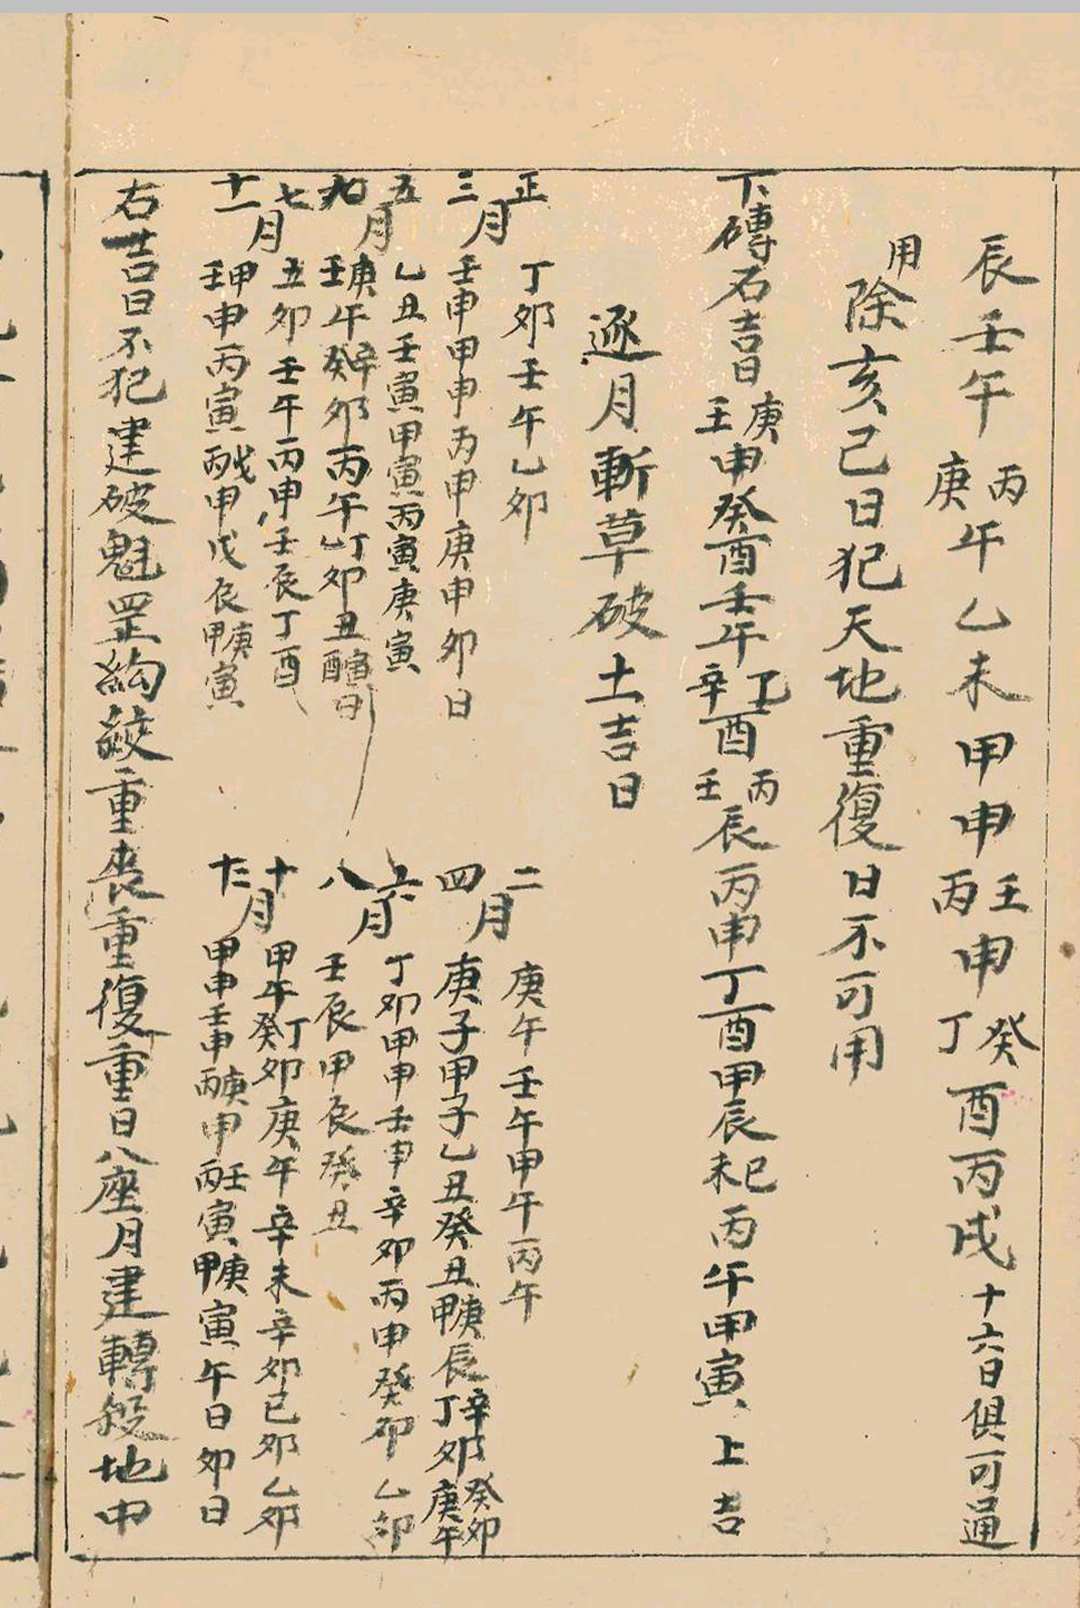 辰壬午丙庚午乙未甲申壬丙申癸丁酉丙戌十六日俱可通
用除亥己日犯天地重復日不可用
下磚石吉日庚壬申癸酉壬午乙辛酉丙壬辰丙申丁酉甲辰巳未丙午甲寅上吉
逐月斬草破土吉日
正月丁卯壬午乙卯
二月庚午壬午甲午丙午
三月壬申甲申丙申庚申卯日
四月庚子甲子乙丑癸丑庚甲辰辛丁卯癸卯庚午
五月乙丑壬寅甲寅丙寅庚寅
六月丁卯甲申壬申辛卯丙申癸卯乙卯
九月庚壬午辛癸卯丙午丁乙卯丑寅酉日
八月壬辰甲辰癸丑
七月五卯壬午丙申壬辰丁酉
十月甲午丁癸卯庚午辛未辛卯已卯乙卯
十一月甲壬申丙寅戊丙申戊辰庚甲寅
十二月甲申壬申庚丙申壬丙寅庚甲寅午日卯日
右吉日不犯建破魁罡絢絞重喪重復重日八座月建轉殺地中